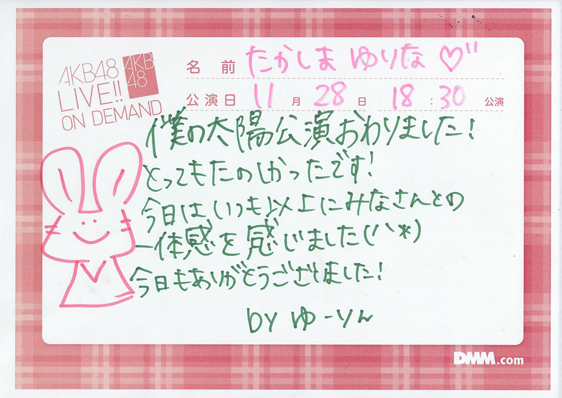 AKB48
LIVE!!
ON DEMAND
AKB
48
名前 たかしまゆりな♡
公演日 11月28日 18:30公演
僕の太陽公演おわりました!
とってもたのしかったです!
今日は、いつも以上にみなさんとの
一体感を感じました(^^*)
今日もありがとうございました!
by ゆーりん
DMM.com